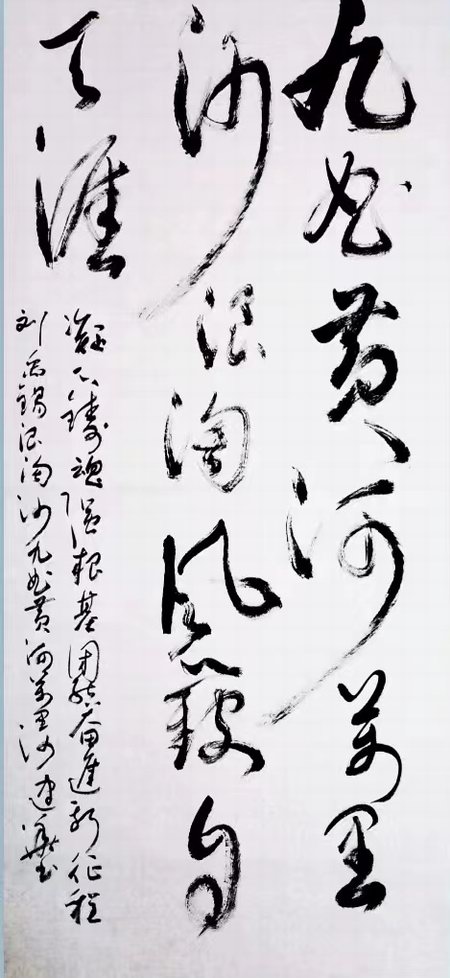 九曲黄河萬里
沙浪淘风簸自
天涯
凝心铸魂强根基团结奋進新征程
刘禹锡浪淘沙九曲黄河萬里沙建华书